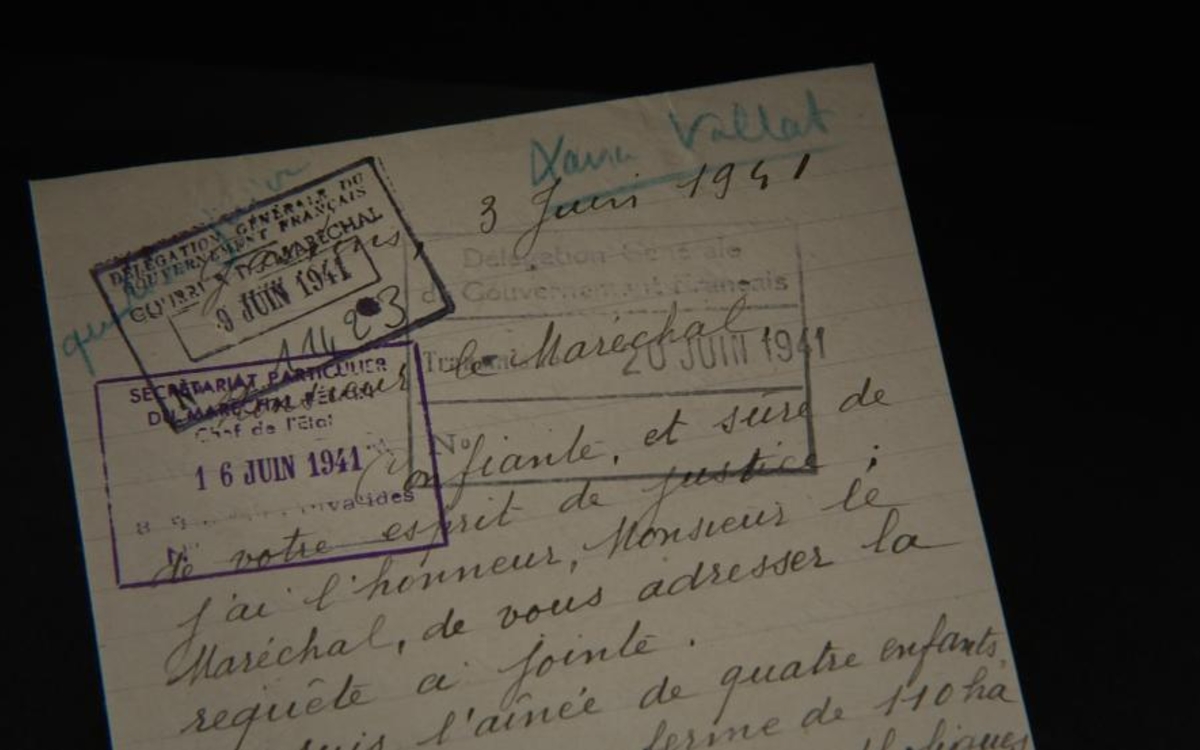 Xavier Vallat
3 Juin 1941
DÉLÉGATION GÉNÉRALE DU
GOUVERNEMENT FRANÇAIS
MARÉCHAL
9 JUIN 1941
11423
Délégation Générale
du Gouvernement Français
20 JUIN 1941
N°
SECRÉTARIAT PARTICULIER
DU MARÉCHAL PÉTAIN
Chef de l'État
16 JUIN 1941
Invalides
Monsieur le Maréchal
Confiante, et sûre de
votre esprit de justice ;
j'ai l'honneur, Monsieur le
Maréchal, de vous adresser la
requête ci jointe.
suis l'aînée de quatre enfants,
ferme de 110 ha